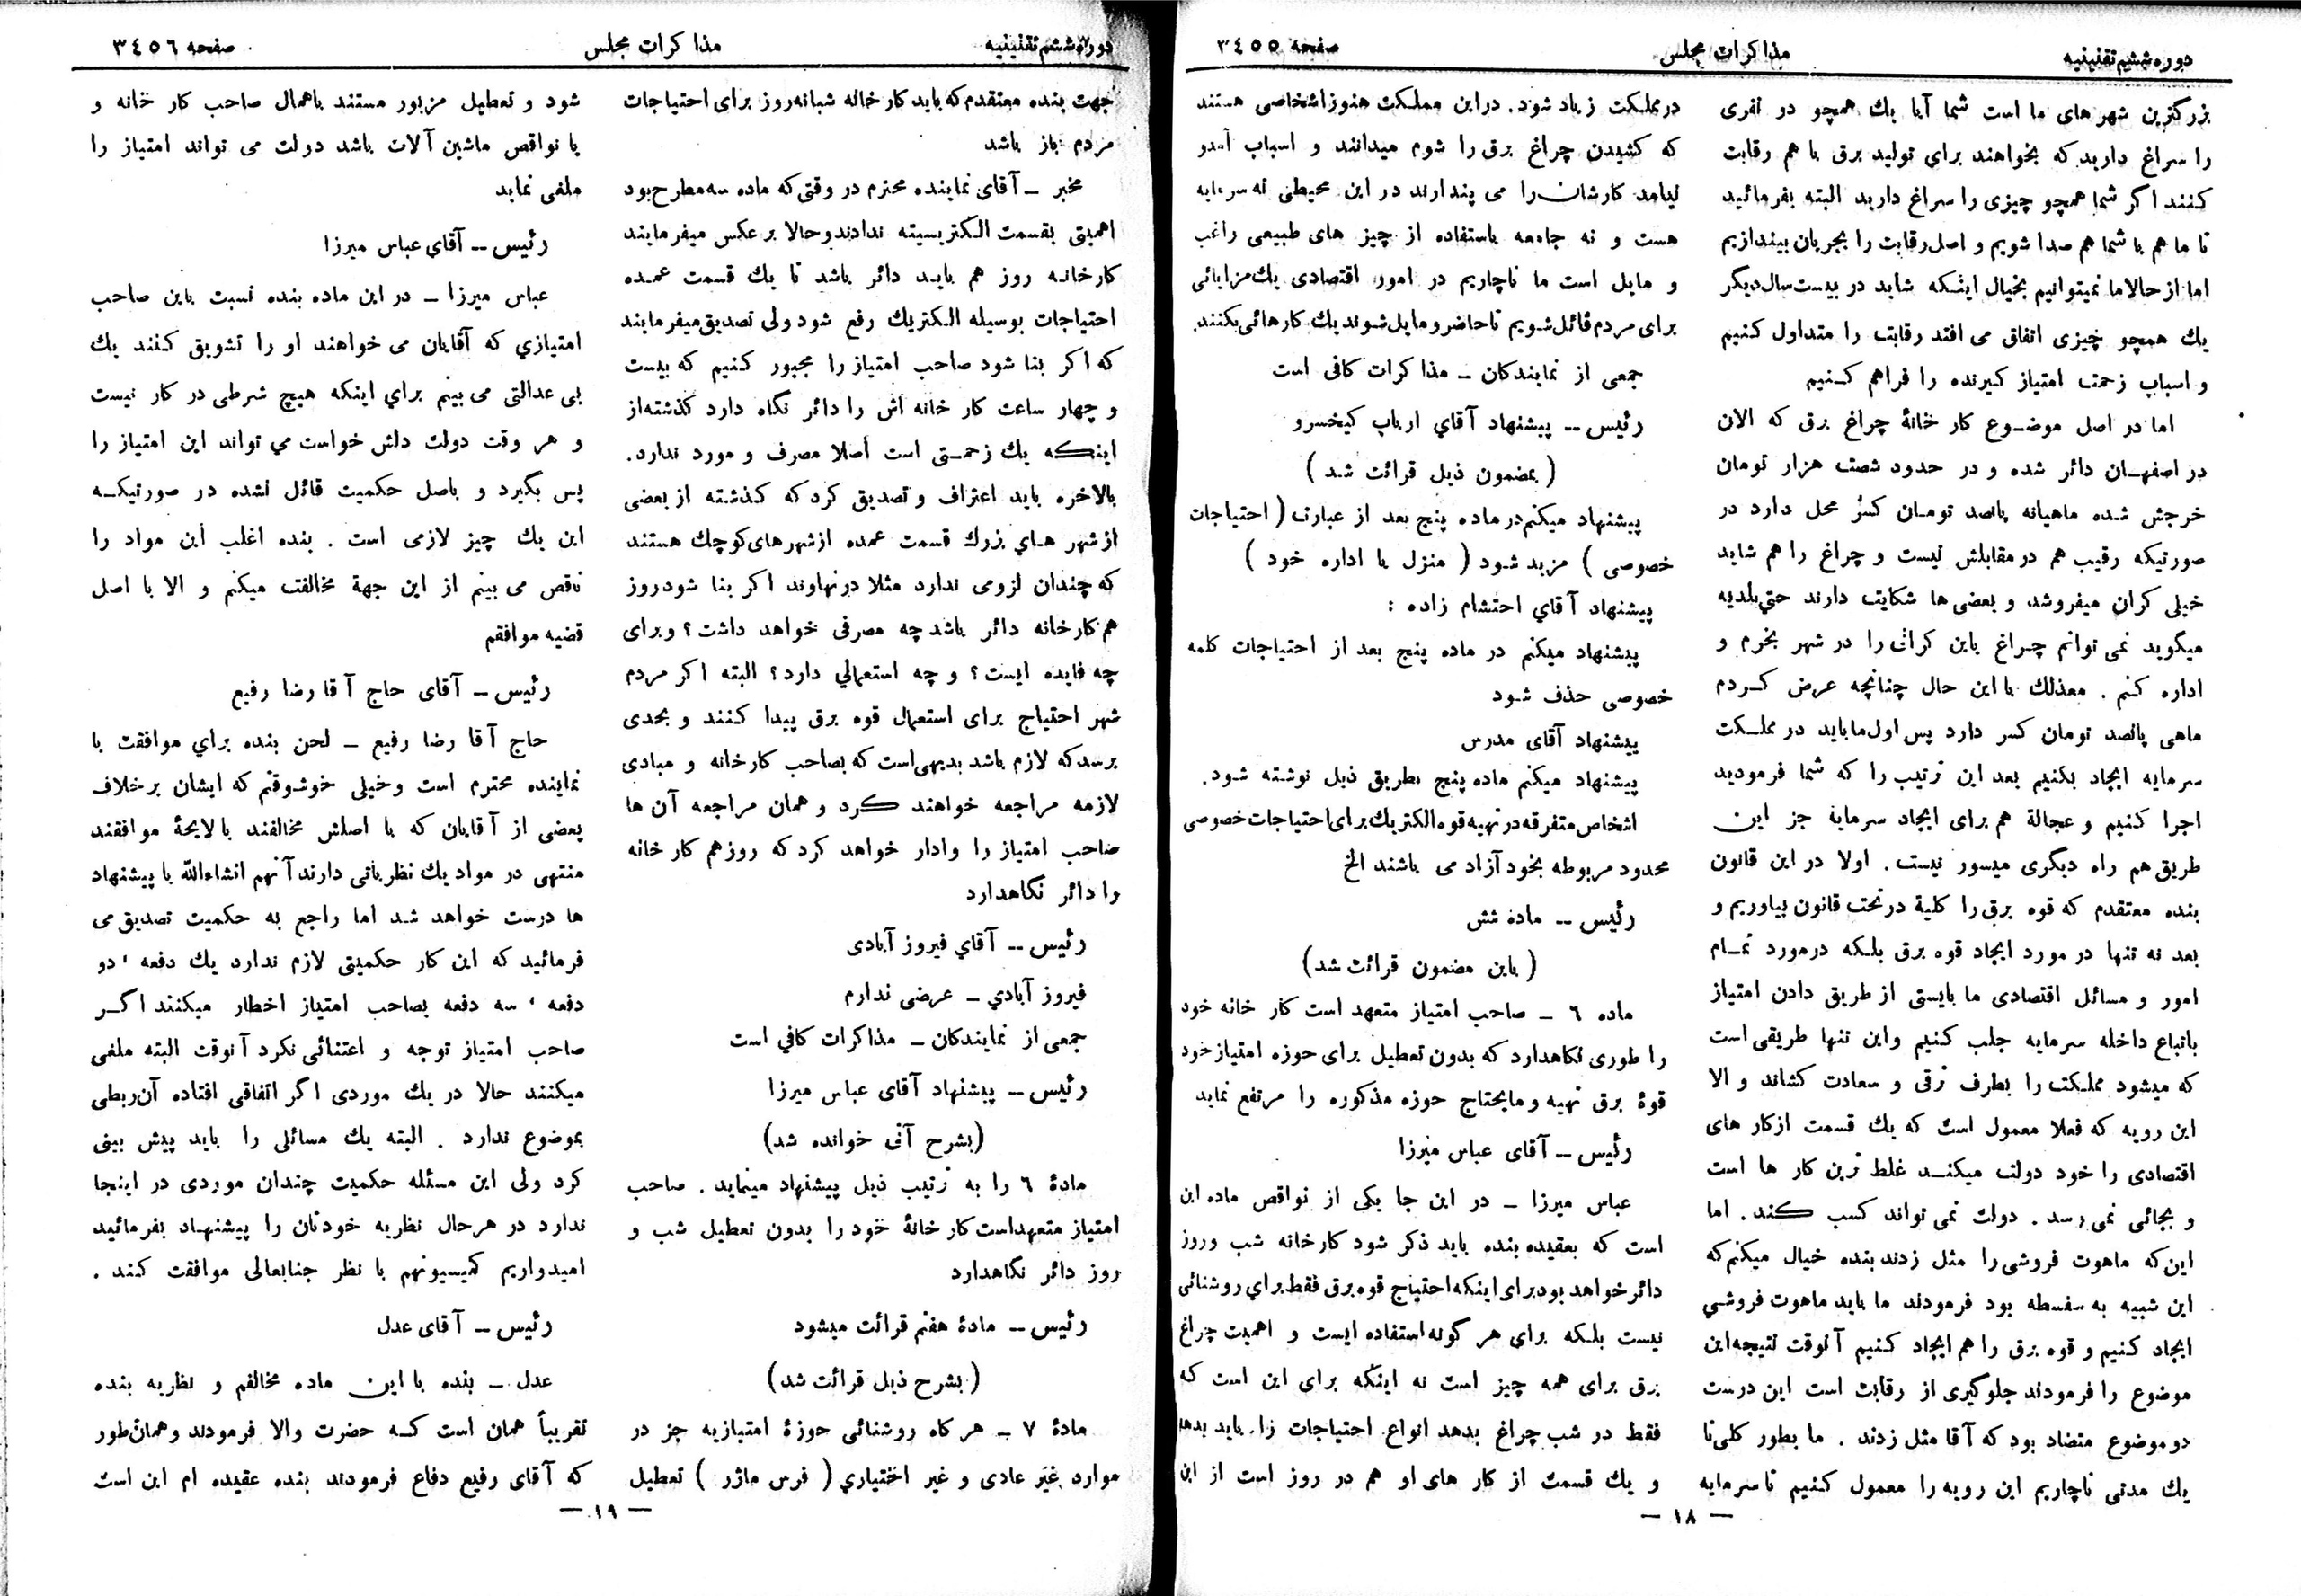 دوره ششم تقنینیه
مذاکرات مجلس
صفحه ۳٤٥٥
بزرگترین شهر های ما است شما آیا یك همچو دو نفری
را سراغ دارید که بخواهند برای تولید برق با هم رقابت
کنند اگر شما همچو چیزی را سراغ دارید البته بفرمائید
تا ما هم با شما هم صدا شویم و اصل رقابت را بجریان بیندازیم
اما از حالا ما نمیتوانیم بخیال اینکه شاید در بیست سال دیگر
یك همچو چیزی اتفاق می افتد رقابت را متداول کنیم
و اسباب زحمت امتیاز گیرنده را فراهم کنیم
اما در اصل موضوع کار خانهٔ چراغ برق که الان
در اصفهان دائر شده و در حدود شصت هزار تومان
خرجش شده ماهیانه پانصد تومان کسر محل دارد در
صورتیکه رقیب هم در مقابلش نیست و چراغ را هم شاید
خیلی گران میفروشد و بعضی ها شکایت دارند حتی بلدیه
میگوید نمی توانم چراغ باین گرانی را در شهر بخرم و
اداره کنم . معذلك با این حال چنانچه عرض کردم
ماهی پانصد تومان کسر دارد پس اول ما باید در مملکت
سرمایه ایجاد بکنیم بعد این ترتیب را که شما فرمودید
اجرا کنیم و عجالة هم برای ایجاد سرمایه جز این
طریق هم راه دیگری میسور نیست . اولا در این قانون
بنده معتقدم که قوه برق را کلیة در تحت قانون بیاوریم و
بعد نه تنها در مورد ایجاد قوه برق بلکه در مورد تمام
امور و مسائل اقتصادی ما بایستی از طریق دادن امتیاز
باتباع داخله سرمایه جلب کنیم و این تنها طریقی است
که میشود مملکت را بطرف ترقی و سعادت کشاند و الا
این رویه که فعلا معمول است که یك قسمت از کار های
اقتصادی را خود دولت میکند غلط ترین کار ها است
و بجائی نمی رسد . دولت نمی تواند کسب کند . اما
این که ماهوت فروشی را مثل زدند بنده خیال میکنم که
این شبیه به سفسطه بود فرمودند ما باید ماهوت فروشي
ایجاد کنیم و قوه برق را هم ایجاد کنیم آنوقت نتیجه این
موضوع را فرمودند جلوگیری از رقابت است این درست
دو موضوع متضاد بود که آقا مثل زدند . ما بطور کلی تا
یك مدتی ناچاریم این رویه را معمول کنیم تا سرمایه
در مملکت زیاد شود . در این مملکت هنوز اشخاصی هستند
که کشیدن چراغ برق را شوم میدانند و اسباب آمدو
نیامد کارشان را می پندارند در این محیطی نه سرمایه
هست و نه جامعه باستفاده از چیز های طبیعی راغب
و مایل است ما ناچاریم در امور اقتصادی یك مزایائی
برای مردم قائل شویم تا حاضر و مایل شوند یك کارهائی بکنند.
جمعی از نمایندگان ــ مذاکرات کافی است
رئیس ــ پیشنهاد آقاي ارباب کیخسرو
( بمضمون ذیل قرائت شد )
پیشنهاد میکنم در ماده پنج بعد از عبارت ( احتیاجات
خصوصی ) مزید شود ( منزل یا اداره خود )
پیشنهاد آقاي احتشام زاده :
پیشنهاد میکنم در ماده پنج بعد از احتیاجات کلمه
خصوصی حذف شود
پیشنهاد آقای مدرس
پیشنهاد میکنم ماده پنج بطریق ذیل نوشته شود .
اشخاص متفرقه در تهیه قوه الکتریك برای احتیاجات خصوصی
محدود مربوطه بخود آزاد می باشند الخ
رئیس ــ ماده شش
( باین مضمون قرائت شد )
ماده ٦ ــ صاحب امتیاز متعهد است کار خانه خود
را طوری نگاهدارد که بدون تعطیل برای حوزه امتیاز خود
قوهٔ برق تهیه و مایحتاج حوزه مذکوره را مرتفع نماید
رئیس ــ آقای عباس میرزا
عباس میرزا ــ در این جا یکی از نواقص ماده این
است که بعقیده بنده باید ذکر شود کارخانه شب و روز
دائر خواهد بود برای اینکه احتیاج قوه برق فقط براي روشنائی
نیست بلکه برای هر گونه استفاده ایست و اهمیت چراغ
برق برای همه چیز است نه اینکه برای این است که
فقط در شب چراغ بدهد انواع احتیاجات را باید بدهد
و یك قسمت از کار های او هم در روز است از این
— ۱۸ —
دوره ششم تقنینیه
مذاکرات مجلس
صفحه ۳٤٥٦
جهت بنده معتقدم که باید کار خانه شبانه روز برای احتیاجات
مردم باز باشد
مخبر ــ آقای نماینده محترم در وقتی که ماده سه مطرح بود
اهمیتی بقسمت الکتریسیته ندادند و حالا برعکس میفرمایند
کارخانه روز هم باید دائر باشد تا یك قسمت عمده
احتیاجات بوسیله الکتریك رفع شود ولی تصدیق میفرمایند
که اگر بنا شود صاحب امتیاز را مجبور کنیم که بیست
و چهار ساعت کار خانه اش را دائر نگاه دارد گذشته از
اینکه یك زحمتی است اصلا مصرف و مورد ندارد .
بالاخره باید اعتراف و تصدیق کرد که گذشته از بعضی
از شهر هاي بزرگ قسمت عمده از شهرهای کوچك هستند
که چندان لزومی ندارد مثلا در نهاوند اگر بنا شود روز
هم کارخانه دائر باشد چه مصرفی خواهد داشت ؟ و برای
چه فایده ایست ؟ و چه استعمالی دارد ؟ البته اگر مردم
شهر احتیاج برای استعمال قوه برق پیدا کنند و بحدی
برسد که لازم باشد بدیهی است که بصاحب کارخانه و مبادی
لازمه مراجعه خواهند کرد و همان مراجعه آن ها
صاحب امتیاز را وادار خواهد کرد که روز هم کار خانه
را دائر نگاهدارد
رئیس ــ آقاي فیروز آبادی
فیروز آبادي ــ عرضی ندارم
جمعی از نمایندگان ــ مذاکرات کافي است
رئیس ــ پیشنهاد آقای عباس میرزا
(بشرح آتی خوانده شد)
مادهٔ ٦ را به ترتیب ذیل پیشنهاد مینماید . صاحب
امتیاز متعهد است کار خانهٔ خود را بدون تعطیل شب و
روز دائر نگاهدارد
رئیس ــ مادهٔ هفتم قرائت میشود
( بشرح ذیل قرائت شد )
مادهٔ ۷ ــ هر گاه روشنائی حوزهٔ امتیازیه جز در
موارد غیر عادی و غیر اختیاري ( فرس ماژر ) تعطیل
شود و تعطیل مزبور مستند باهمال صاحب کار خانه و
یا نواقص ماشین آلات باشد دولت می تواند امتیاز را
ملغی نماید
رئیس ــ آقای عباس میرزا
عباس میرزا ــ در این ماده بنده نسبت باین صاحب
امتیازي که آقایان می خواهند او را تشویق کنند یك
بی عدالتی می بینم براي اینکه هیچ شرطی در کار نیست
و هر وقت دولت دلش خواست می تواند این امتیاز را
پس بگیرد و باصل حکمیت قائل نشده در صورتیکه
این یك چیز لازمی است . بنده اغلب این مواد را
ناقص می بینم از این جهة مخالفت میکنم و الا با اصل
قضیه موافقم
رئیس ــ آقای حاج آقا رضا رفیع
حاج آقا رضا رفیع ــ لحن بنده براي موافقت با
نماینده محترم است و خیلی خوشوقتم که ایشان برخلاف
بعضی از آقایان که با اصلش مخالفند با لایحهٔ موافقند
منتهی در مواد یك نظریاتی دارند آنهم انشاءالله با پیشنهاد
ها درست خواهد شد اما راجع به حکمیت تصدیق می
فرمائید که این کار حکمیتی لازم ندارد یك دفعه ، دو
دفعه ، سه دفعه بصاحب امتیاز اخطار میکنند اگر
صاحب امتیاز توجه و اعتنائی نکرد آنوقت البته ملغی
میکنند حالا در یك موردی اگر اتفاقی افتاده آن ربطی
بموضوع ندارد . البته یك مسائلی را باید پیش بینی
کرد ولی این مسئله حکمیت چندان موردی در اینجا
ندارد در هرحال نظریه خودتان را پیشنهاد بفرمائید
امیدواریم کمیسیونهم با نظر جنابعالی موافقت کند .
رئیس ــ آقای عدل
عدل ــ بنده با این ماده مخالفم و نظریه بنده
تقریباً همان است که حضرت والا فرمودند و همان طور
که آقای رفیع دفاع فرمودند بنده عقیده ام این است
— ۱۹ —